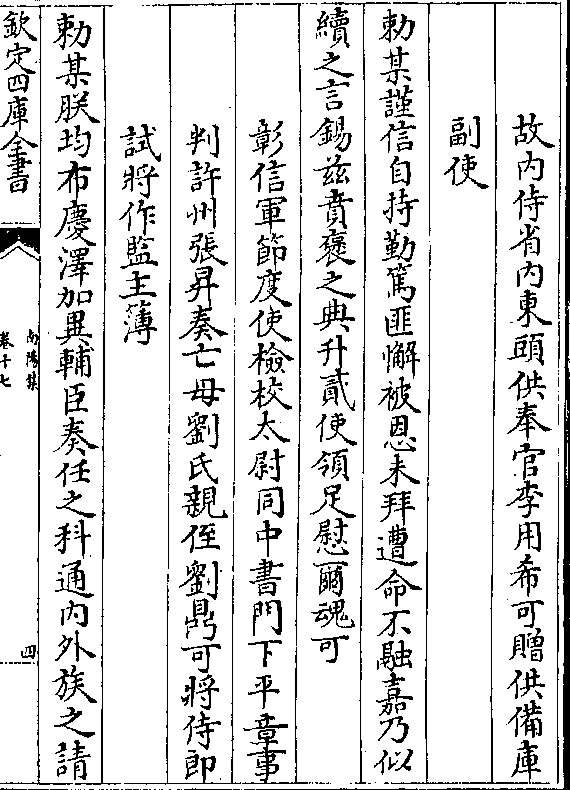 故内侍省内東頭供奉官李用希可贈供備庫
副使
勅某謹信自持勤篤匪懈被恩未拜遭命不融嘉乃似
續之言錫兹賁褒之典升貳使領足慰爾魂可
彰信軍節度使檢校太尉同中書門下平章事
判許州張昇奏亡母劉氏親侄劉鼎可將侍郎
試將作監主簿
勅某朕均布慶澤加異輔臣奏任之科通内外族之請
欽定四庫全書
南陽集
卷十七
四